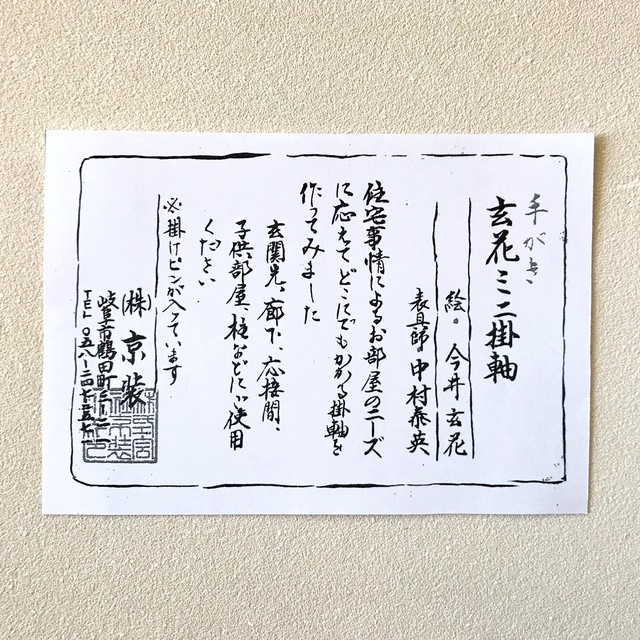 手がき
玄花ミニ掛軸
絵。今井玄花
表具師。中村泰英
住宅事情によるお部屋のニーズ
に応えてどこにでもかかる掛軸を
作ってみました
玄関先、廊下、応接間、
子供部屋、柱などにご使用
ください
※掛けピンが入っています
(株)京装
岐阜市鶴田町三ー二一
TEL 〇五八ー二四七ー二五七一